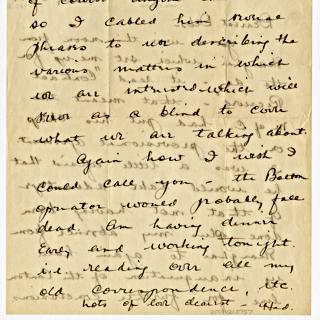 so I cabled him some
phrases to use describing the
various matters in which
we are interested which will
serve as a blind to cover
what we are talking about.
Again how I wish I
could call you – the Boston
operator would probably fall
dead. Am having dinner
early and working tonight.
i.e. reading over all my
old correspondence, etc.
Lots of love dearest – Had.